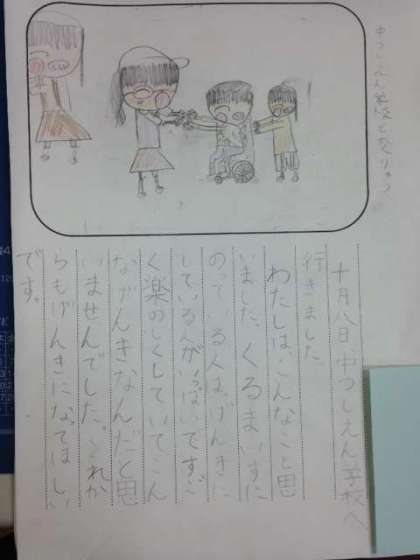 中つしえん学校と交りゅう
十月八日、中つしえん学校へ
行きました
わたしは、こんなこと思
いました。くるまいすに
のっている人は、げんきに
している人がいっぱいですご
く楽のしくしていてこん
なげんきなんだと思
いませんでした。これか
らもげんきになってほしい
です。